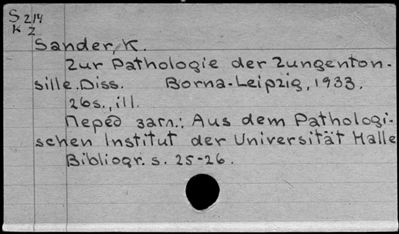 S 214
K 2
Sander, K.
Zur Pathologie der Zungenton-
sille. Diss. Borna-Leipzig, 1933.
26s., ill.
Перед загл.: Aus dem Pathologi-
schen Institut der Universität Halle
Bibliogr. s. 25-26.